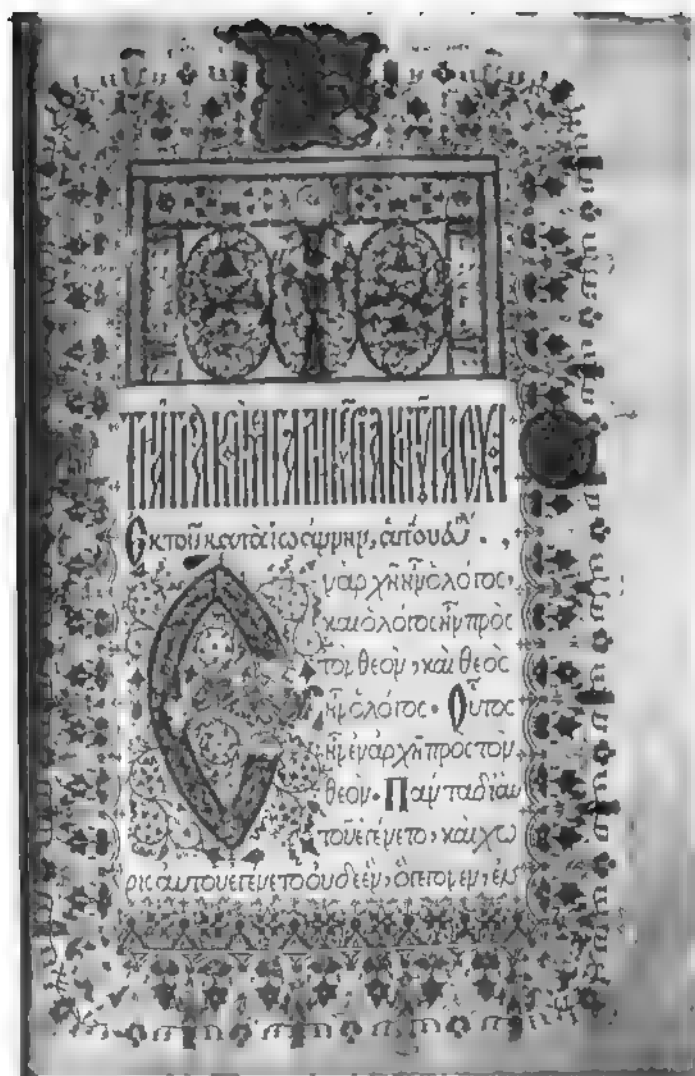 Τῌ ἉΓΊᾼ ΚΑῚ ΜΕΓΆΛῌ ΚΥΡΙΑΚῇ ΤΟΥ ΠΆΣΧΑ:
Ἐκ τοῦ κατὰ ἰωάννην, ἁγίου
Ἐν ἀρχῆ ἦν ὁ λόγος,
καὶ ὁ λόγος ἦν πρὸς
τὸν θεὸν, καὶ θεὸς
ἦν ὁ λόγος. Οὗτος
ἦν ἐν ἀρχῆ προς τὸν
θεόν. Πάντα δι αυ
τοῦ ἐγένετο, καὶ χω
ρὶς αυτοῦ ἐγένετο οὐδε ἓν, ὃ γέγονεν, ἐν